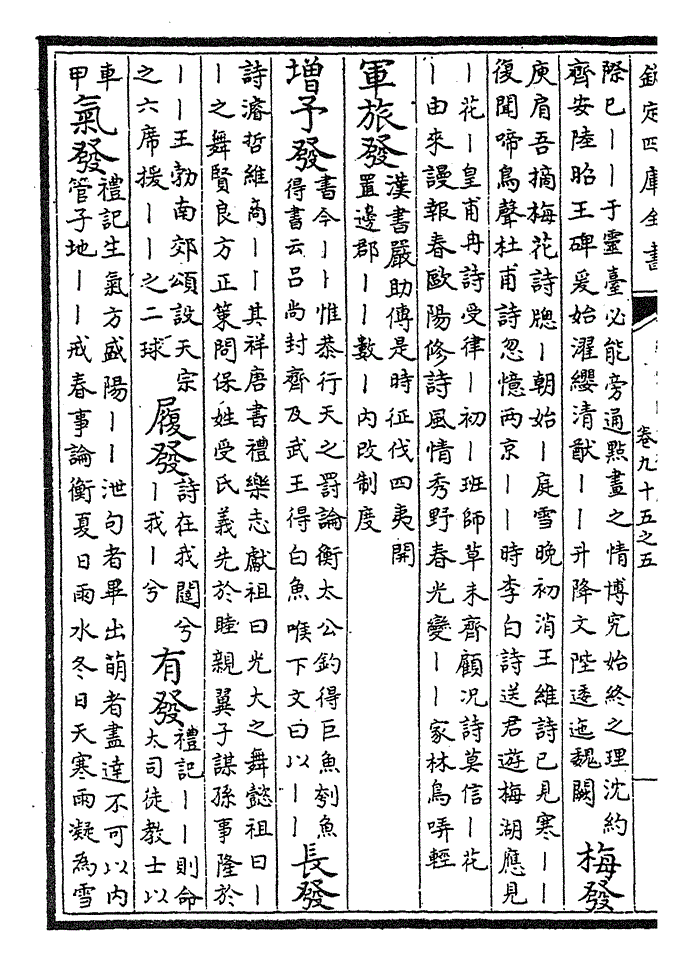 欽定四庫全書
卷九十五之五
際已||于靈臺必能旁通點畫之情博究始終之理沈約
齊安陸昭王碑爰始濯纓清猷||升降文陛逶迤魏闕
梅發
庾肩吾摘梅花詩牕|朝始|庭雪晚初消王維詩已見寒||
復聞啼鳥聲杜甫詩忽憶兩京||時李白詩送君遊梅湖應見
|花|皇甫冉詩受律|初|班師草未齊顧况詩莫信|花
|由來謾報春歐陽修詩風情秀野春光變||家林鳥哢輕
軍旅發
漢書嚴助傳是時征伐四夷開
置邊郡||數|内改制度
增予發
書今||惟恭行天之罰論衡太公釣得巨魚刳魚
得書云吕尚封齊及武王得白魚喉下文曰以||
長發
詩濬哲維商||其祥唐書禮樂志獻祖曰光大之舞懿祖曰|
|之舞賢良方正策問保姓受氏義先於睦親翼子謀孫事隆於
||王勃南郊頌設天宗
之六席援||之二球
履發
詩在我闥兮
|我|兮
有發
禮記||則命
大司徒教士以
車
甲
氣發
禮記生氣方盛陽||泄句者畢出萌者盡達不可以内
管子地||戒春事論衡夏日雨水冬日天寒雨凝為雪